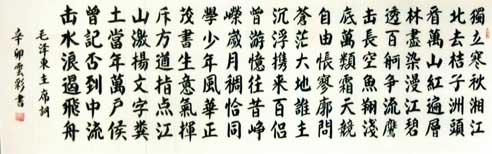 獨立寒秋湘江
北去桔子洲頭
看萬山紅遍層
林盡染漫江碧
透百舸争流鷹
击長空魚翔淺
底萬類霜天競
自由悵寥廓問
蒼茫大地誰主
沉浮攜来百侣
曾游憶往昔崢
嶸歲月稠恰同
學少年風華正
茂書生意氣揮
斥方遒指点江
山激揚文字糞
土當年萬户侯
曾記否到中流
击水浪遏飛舟
毛澤東主席詞
辛卯雲彩書